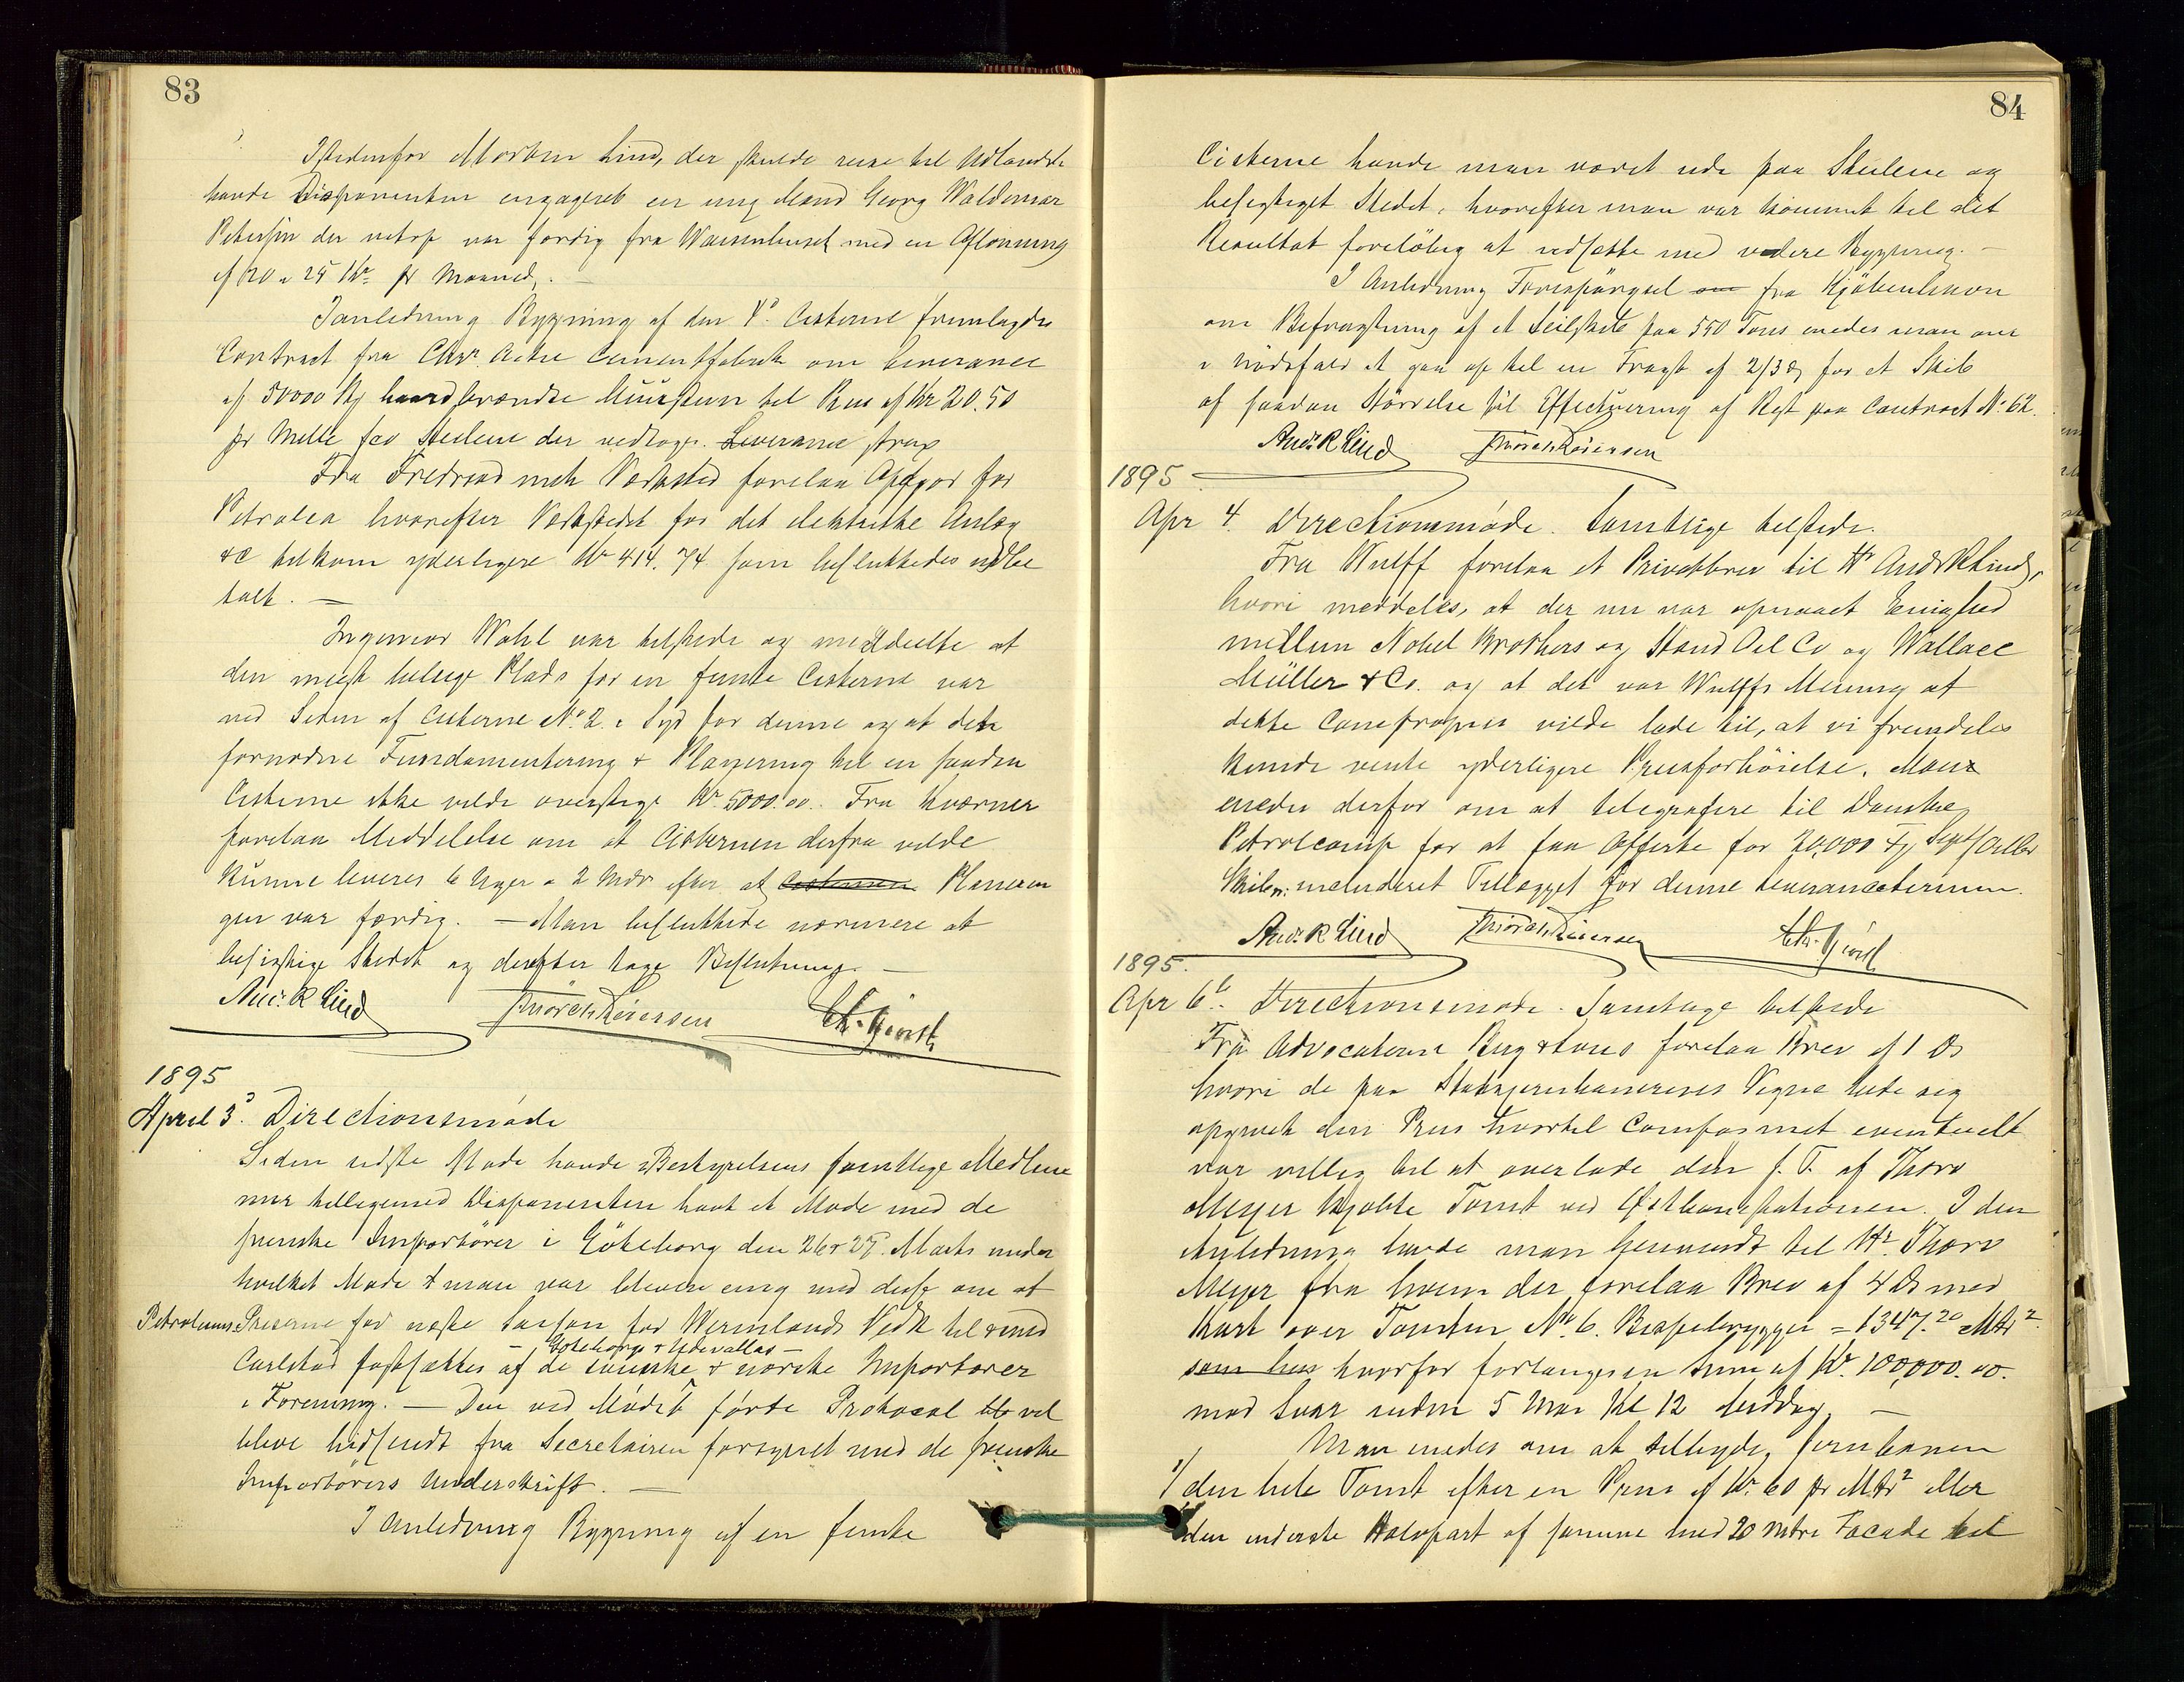 83
Istedenfor Morten Lind, der skulde reise til Udlandet
havde Disponenten engageret en ung Mand Georg Waldemar
Petersen der netop var færdig fra Waisenhuset med en Aflønning
af 20 a 25 Kr pr Maaned. —
Ianledning Bygning af den Cisterne fremlagdes
Contract fra Chr. Actie Cementfabrik om Leverance
af 50000 haardbrændte Mursten til Pris af Kr 20.50
pr Mille fco Steilene der vedtoges. Leverance strax
Fra Fredrend mek Værksted forelaa Opgjør for
Petrolea hvorefter Værkstedet for det elektriske Anlæg
&c tilkom yderligere Kr 414.74 som besluttedes udbe
talt. —
Ingeniør Wahl var tilstede og meddeelte at
den mest belejlige Plads for en femte Cisterne var
ved Siden af Cisterne No 2 i Syd for denne og at den
fornødne Fundamentering & Planering til en saadan
Cisterne ikke vilde overstige Kr 5000.00. Fra Kværner
forelaa Meddelelse om at Cisternen derfra vilde
kunne leveres 6 Uger a 2 Mdr efter at Cisternen Planerin
gen var færdig. — Man besluttede nærmere at
besigtige Stedet og derefter tage Beslutning. —
And. R Lind Thorvald Sørensen
1895
April 3. Directionsmøde
Siden sidste Møde havde Bestyrelsens samtlige Medlem
mer tilligemed Disponenten havt et Møde med de
svenske Importører i Göteborg den 26 & 27. Marts under
hvilket Møde man var bleven enig med disse om at
Petroleums-Priserne for næste Saison for Wermlands Vedk til & med
— Göteborgs & Udevallas —
Carlstad fastsættes af de svenske & norske Importører
i Forening. — Den ved Mødet førte Protocol vil
blive hidsendt fra Secretairen forsynet med de svenske
Importørers Underskrift. —
I Anledning Bygning af en femte
84
Cisterne havde man været ude paa Steilene og
besigtiget Stedet, hvorefter man var kommet til det
Resultat foreløbig at udsætte med videre Bygning. —
I Anledning Forespørgsel om fra Kjøbenhavn
om Befragtning af et Seilskib paa 550 Tons enedes man om
i Nødsfald at gaa op til en Fragt af 2/3 for et Skib
af saadan Størrelse til Effectuering af Rest paa Contract No 62.
And. R Lind Thorvald Sørensen
1895
Apr 4. Directionsmøde. Samtlige tilstede.
Fra Wulff forelaa et Privatbrev til Hr And R Lind,
hvori meddeles, at der nu var opnaaet Enighed
mellem Nobel Brothers og Stand Oil Co og Wallace
Müller & Co. og at det var Wulffs Mening at
dette vilde lede til, at vi fremdeles
kunde vente yderligere Prisforhøielse. Man
enedes derfor om at telegrafere til Danske
Petrolcomp for at faa Offerte for 20,000 Sept/Octbr
Skibn. incluideret Tillægget for denne Leverancetermin.
And. R Lind Thorvald Sørensen
1895.
Apr 6. Directionsmøde. Samtlige tilstede
Fra Advocaterne Berg & forelaa Brev af 1 ds
hvori de paa Statsjernbanernes Vegne bede sig
opgivet den Pris hvortil Compagniet eventuelt
var villig til at overlade den f. T. af Thorv
Meyer kjøbte Tomt ved Østbanestationen. I den
Anledning havde man henvendt til Hr Thorv
Meyer fra hvem der forelaa Brev af 4 ds med
Kart over Tomten No 6. Bispebryggen = 1347.20 Mtr2.
som hvorfor forlanges en Sum af Kr. 100,000.00.
mod Svar inden 5 Mai Kl 12 Middag. —
Man enedes om at tilbyde Jernbanen
1/ den hele Tomt efter en Pris af Kr. 60 pr Mtr2 eller
den inderste Halvpart af samme med 20 Mtrs Facade til